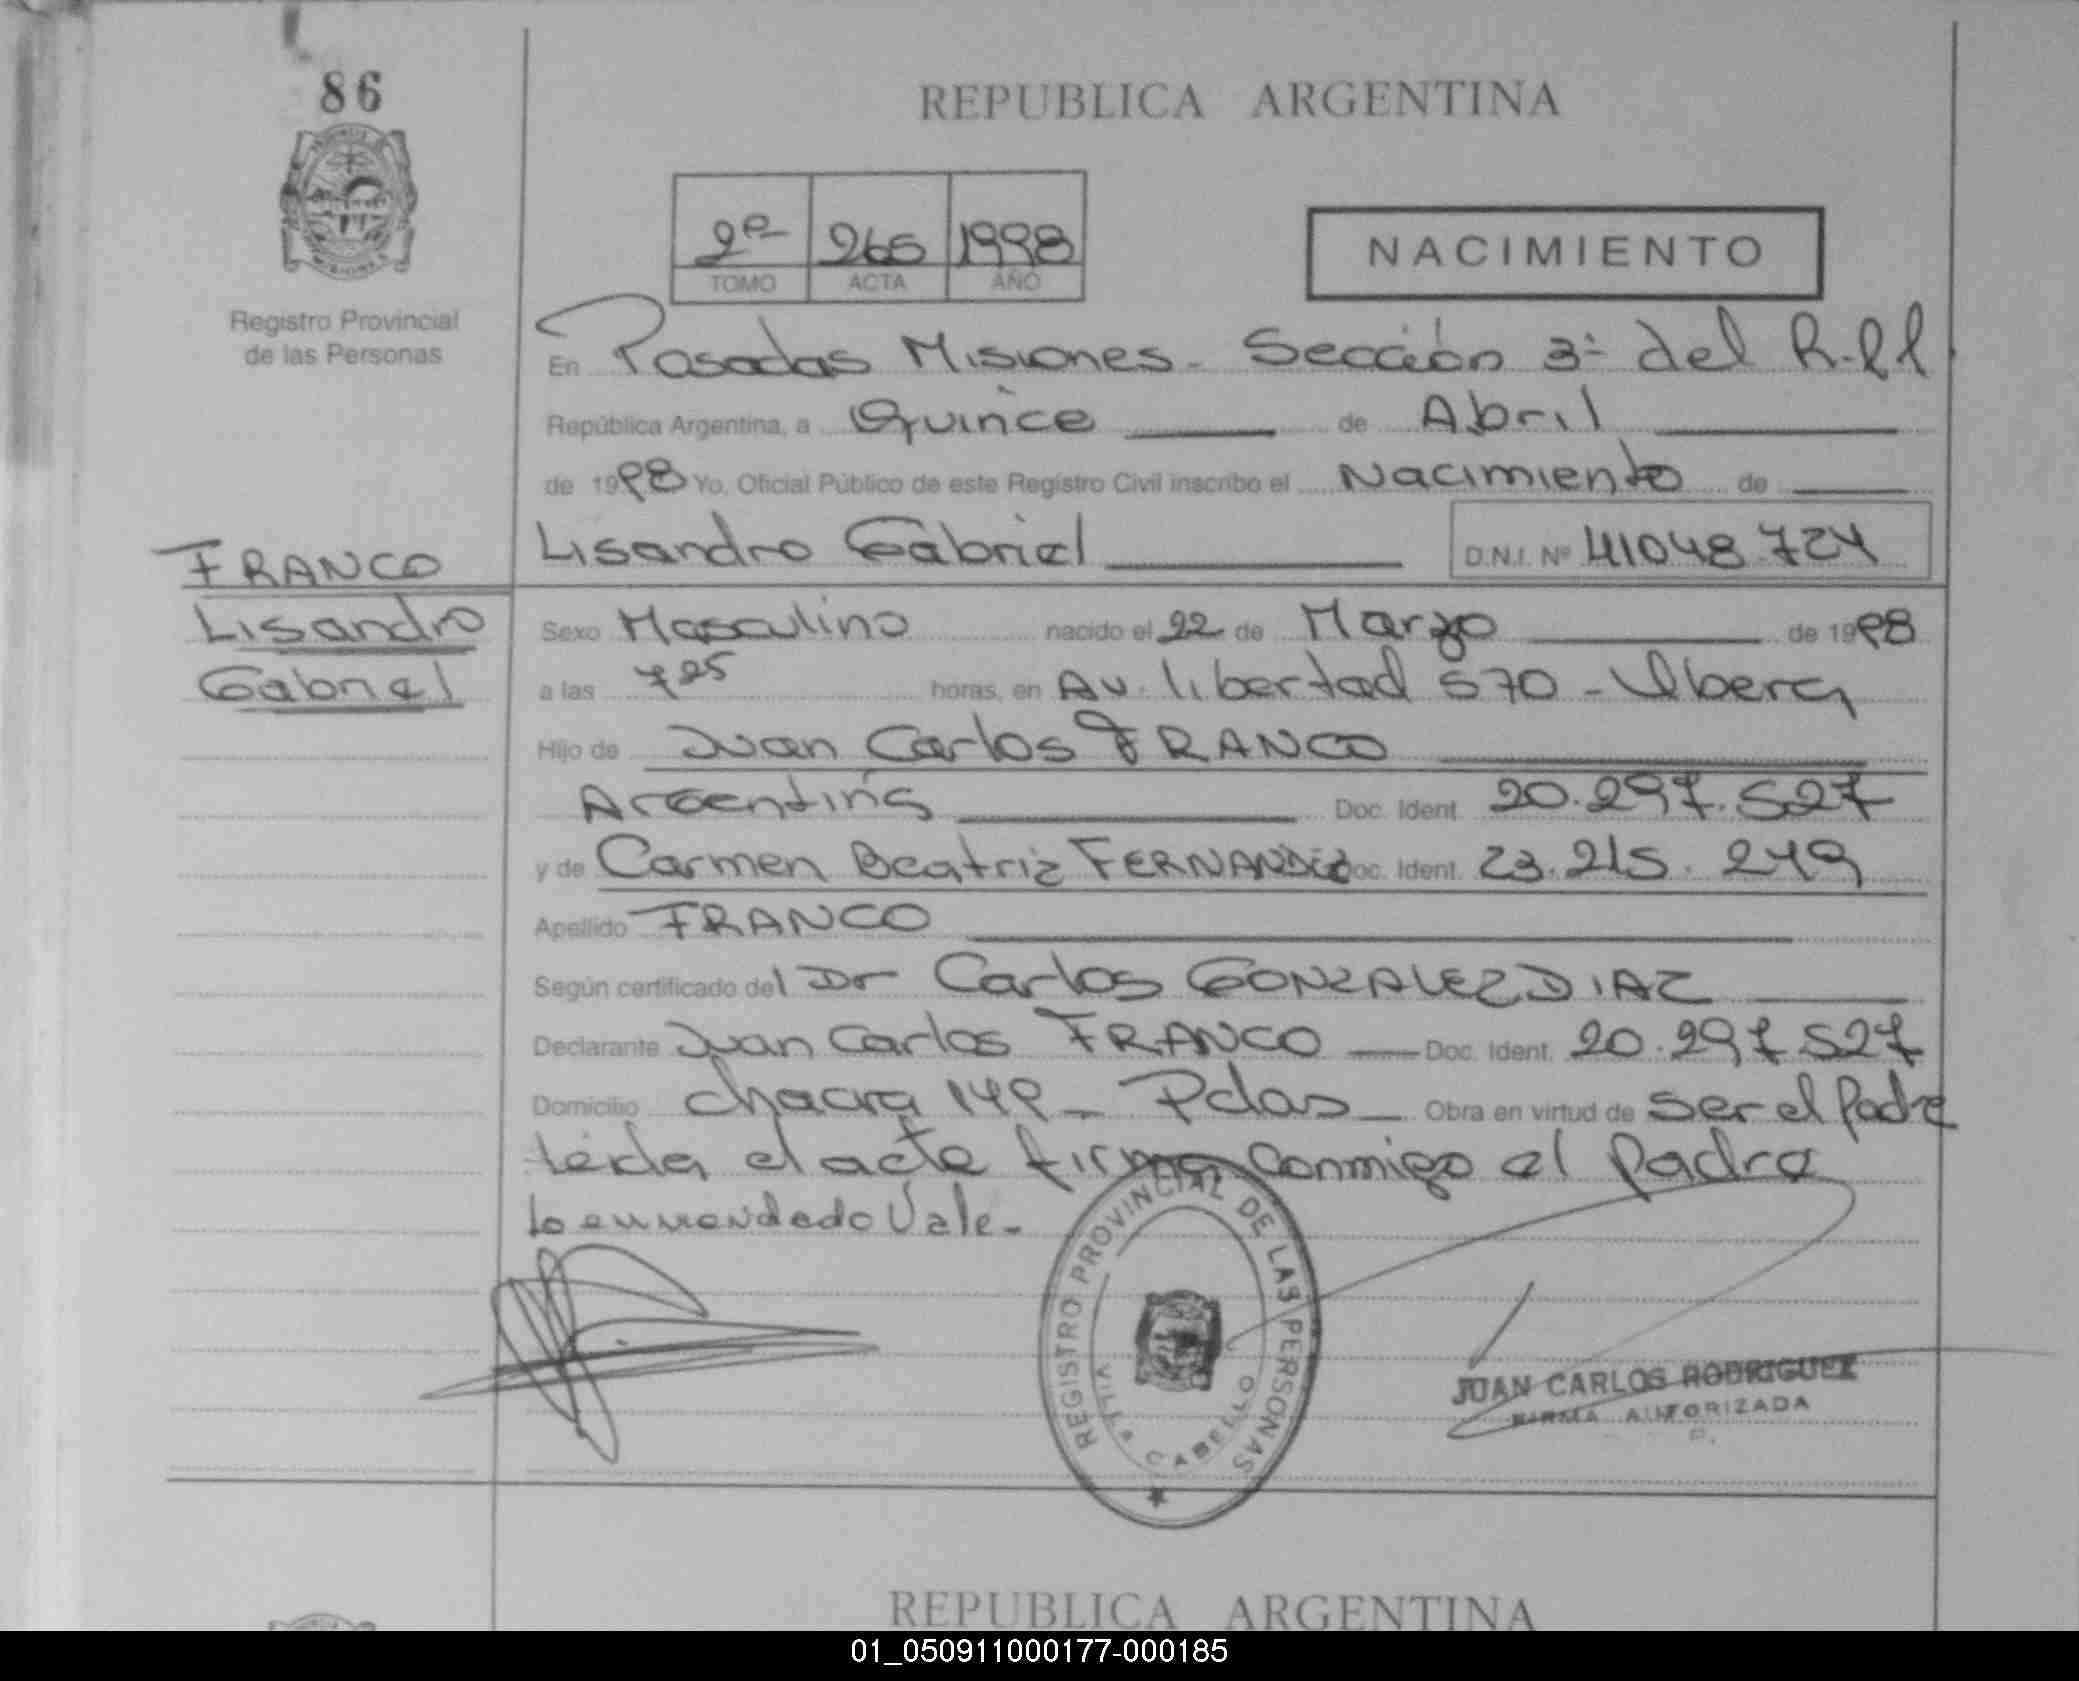 86
REPUBLICA ARGENTINA
2º 265 1998
TOMO ACTA AÑO
NACIMIENTO
Registro Provincial
de las Personas
En Posadas Misiones - Sección 3ª del R.P.P
República Argentina, a Quince de Abril
de 1998 Yo, Oficial Público de este Registro Civil inscribo el Nacimiento de
Lisandro Gabriel D.N.I. Nº 41048.724
FRANCO
Lisandro
Gabriel
Sexo Masculino nacido el 22 de Marzo de 1998
a las 7 25 horas, en Av. libertad 570 -
Hijo de Juan Carlos FRANCO
Argentina Doc. Ident. 20.297.527
y de Carmen Beatriz FERNANDEZ Doc. Ident. 23.215.249
Apellido FRANCO
Según certificado del Dr Carlos GONZALEZ DIAZ
Declarante Juan Carlos FRANCO Doc. Ident. 20.297.527
Domicilio chacra 149 - Pdas - Obra en virtud de ser el Padre
leída el acta firma conmigo el padre
lo enmendado Vale -
REGISTRO PROVINCIAL DE LAS PERSONAS
VILLA CABELLO
JUAN CARLOS RODRIGUEZ
FIRMA AUTORIZADA
REPUBLICA ARGENTINA
01_050911000177-000185